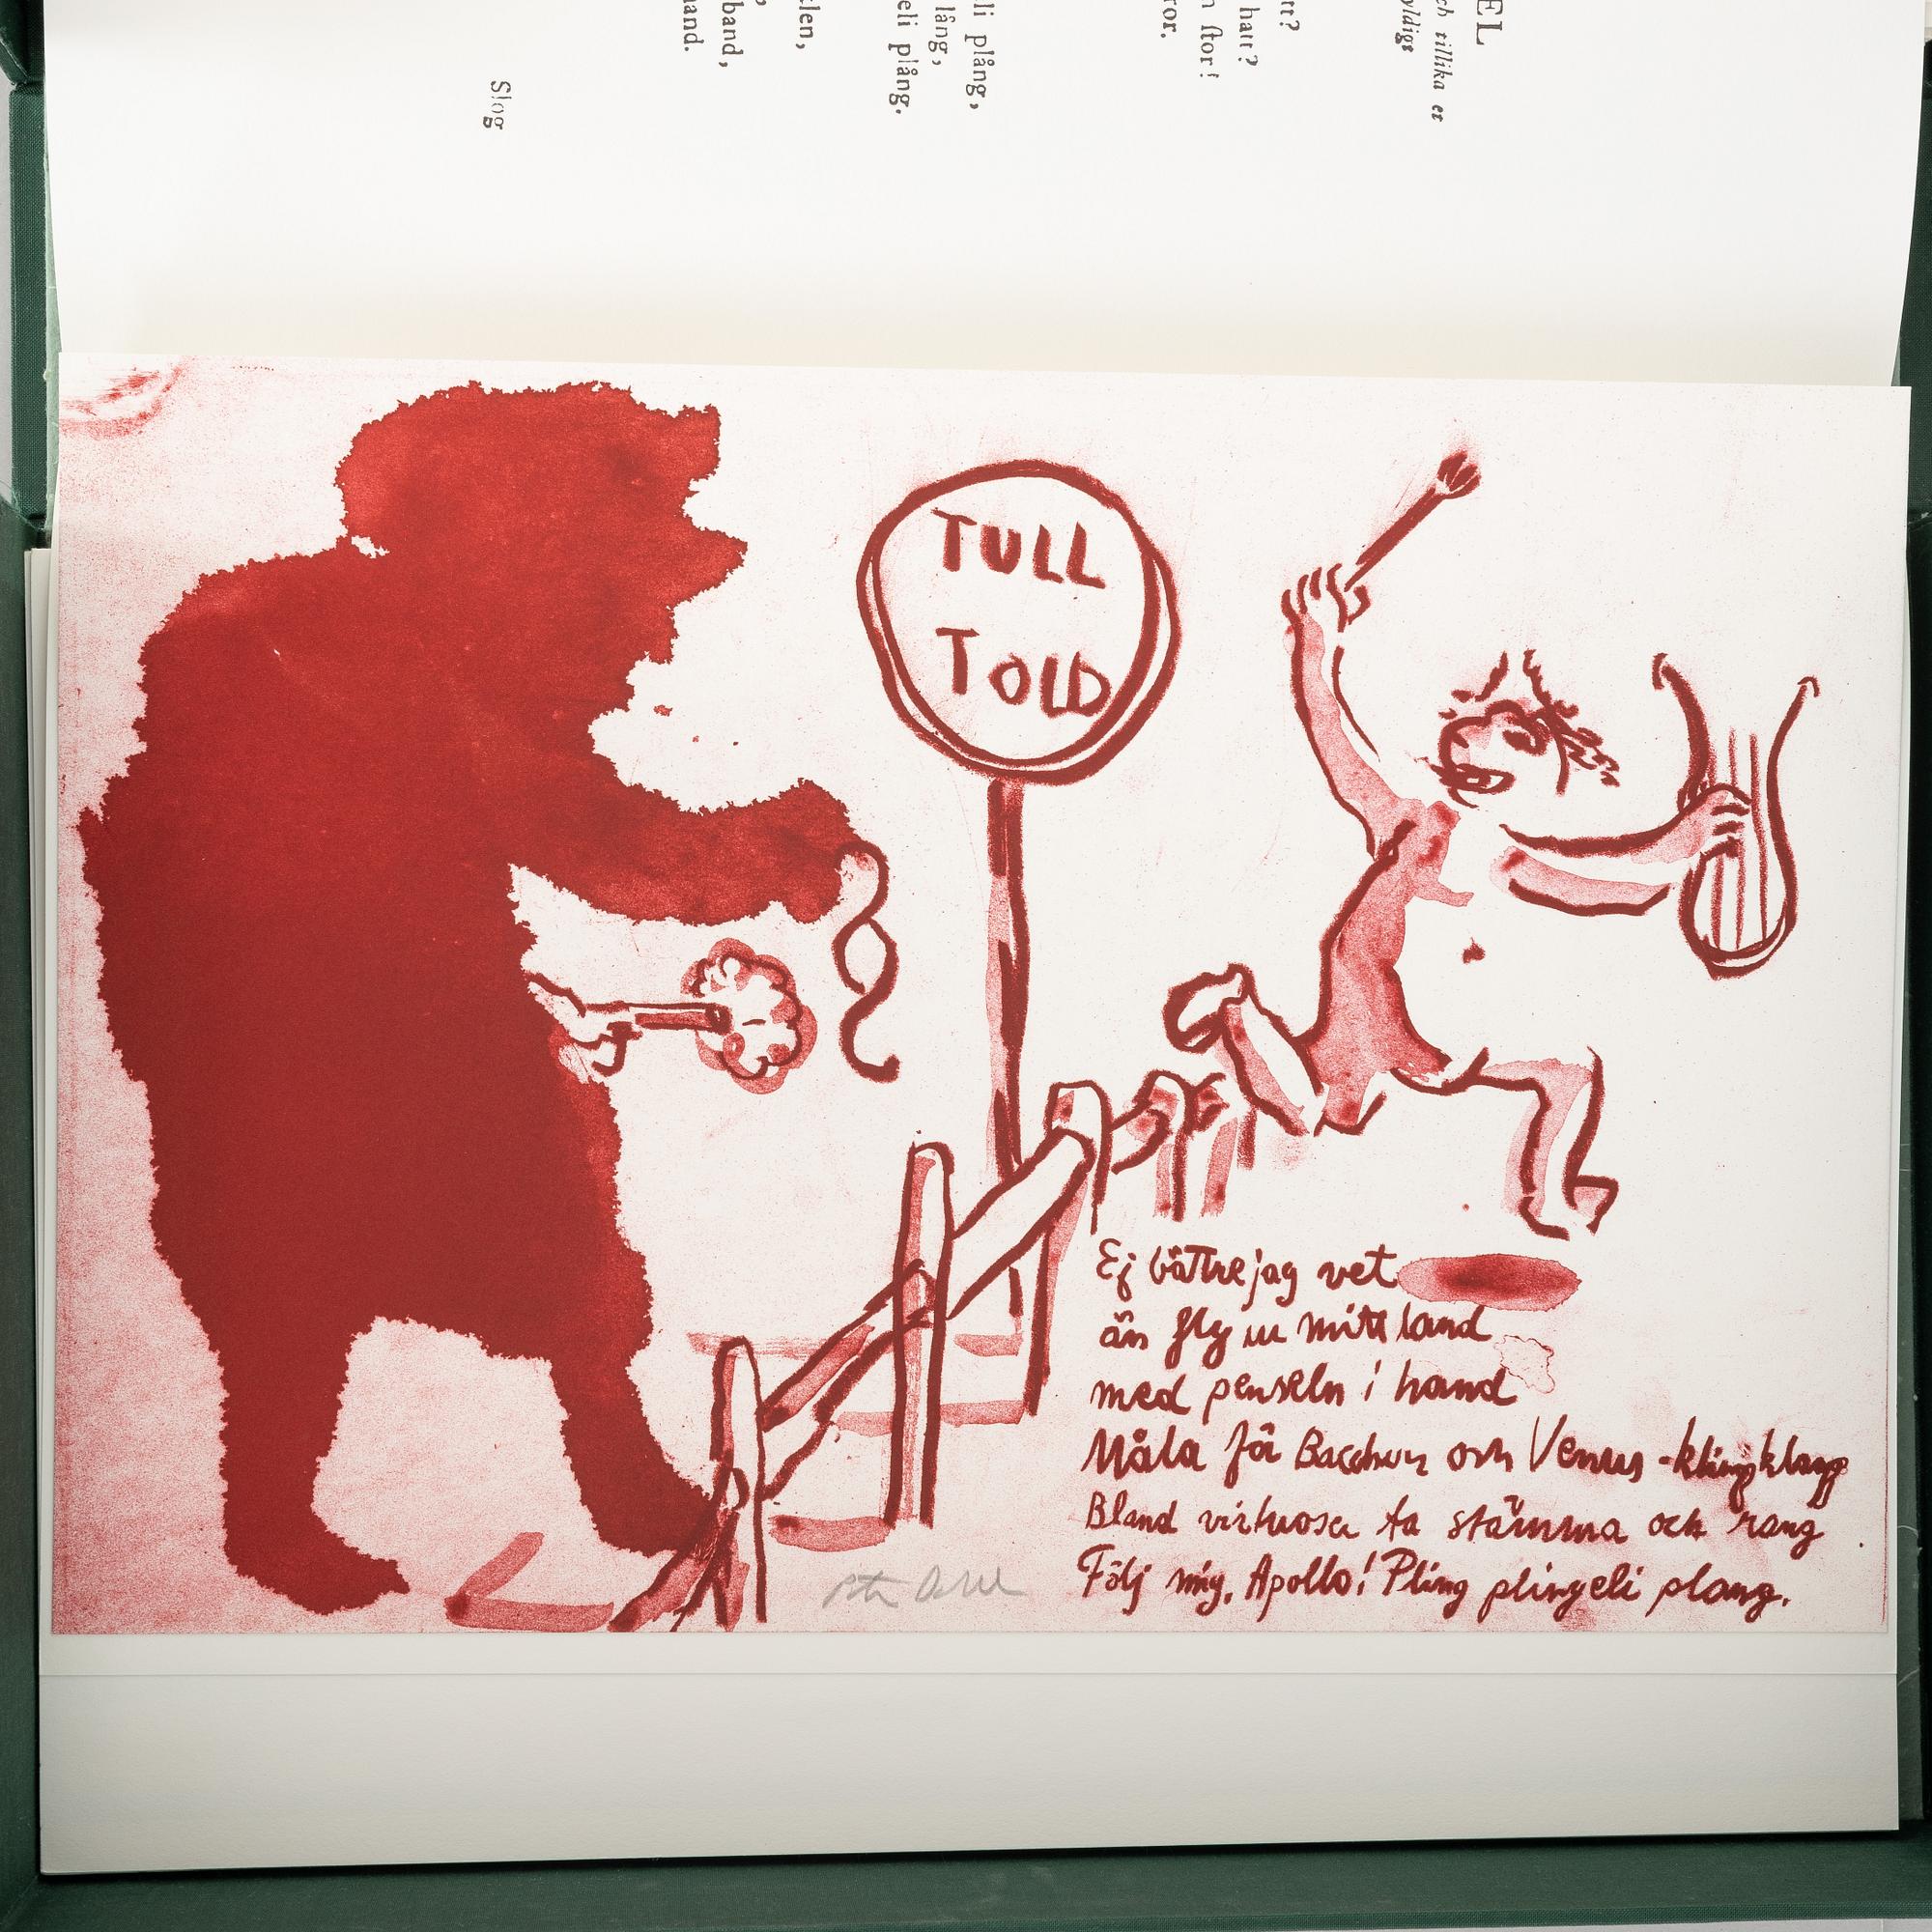 EL
ch tillika er
yldigt
tt?
hatt?
n stor!
ror.
li plång,
lång,
eli plång.
len,
band,
hand.
Slog
TULL
TOLD
Ej bättre jag vet
än fly ur mitt land
med penseln i hand
Måla för Bacchus och Venus - kling klang
Bland virtuoser ta stämma och rang
Följ mig, Apollo! Pling plingeli plang.